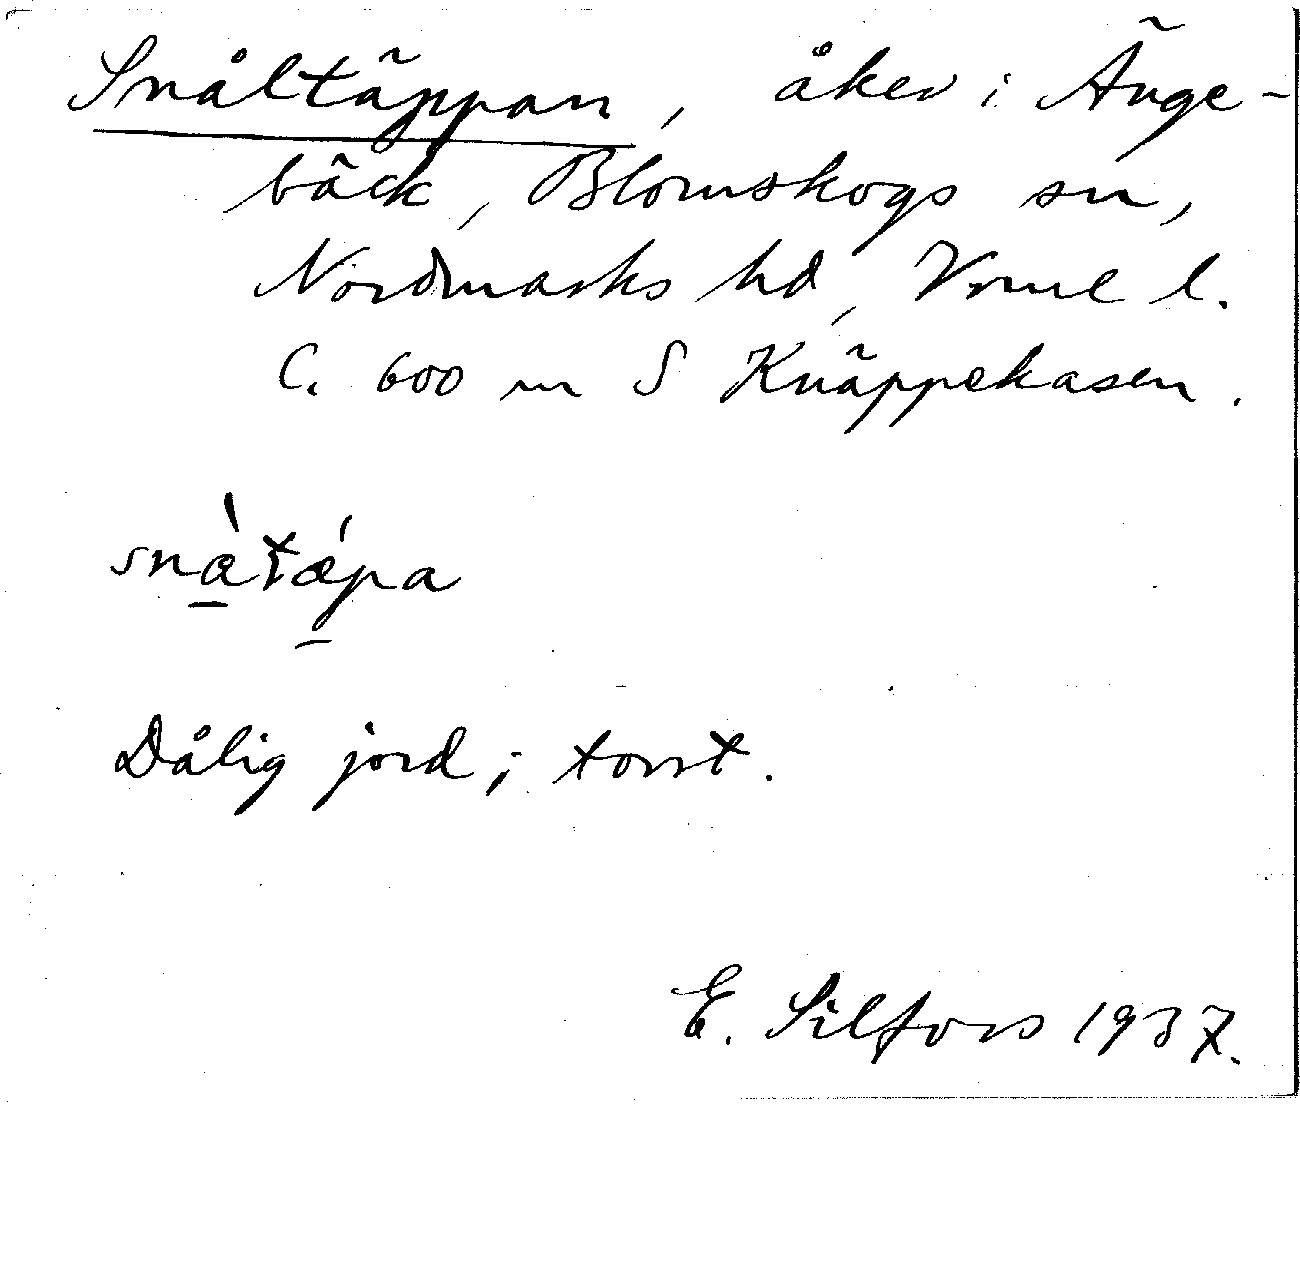 Snåltäppan, åker i Änge-
bäck, Blomskogs sn,
Nordmarks hd, Vrml l.
C. 600 m S Knäppekasen.
Dålig jord; torrt.
E. Silfors 1937.